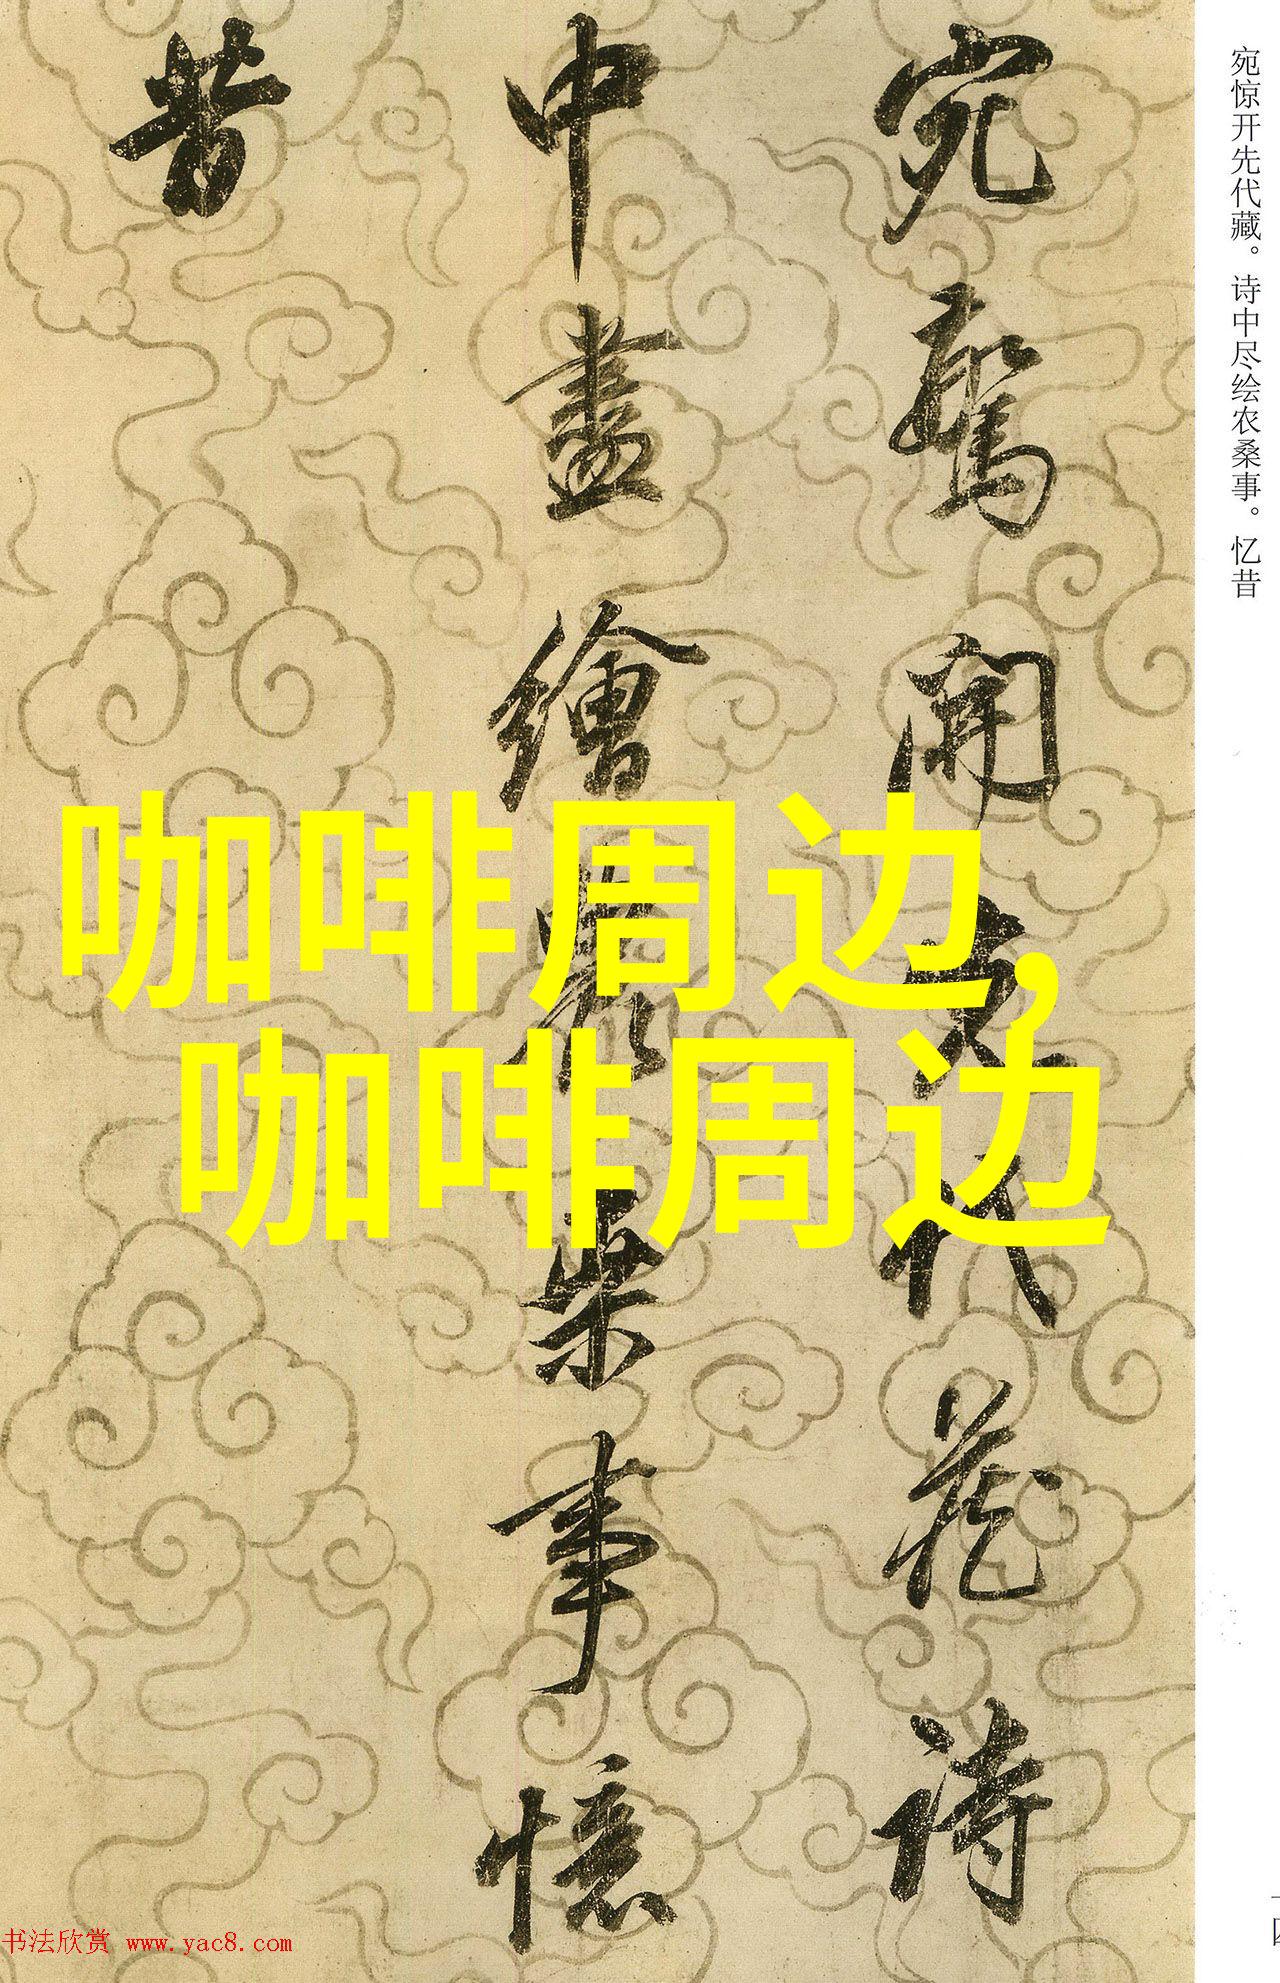 宛惊开先代藏。诗中尽绘农桑事。忆昔
宛驚開先代藏詩
中盡繪農桑事憶
昔
咖啡周边,
咖啡周边
书法欣赏 www.yac8.com